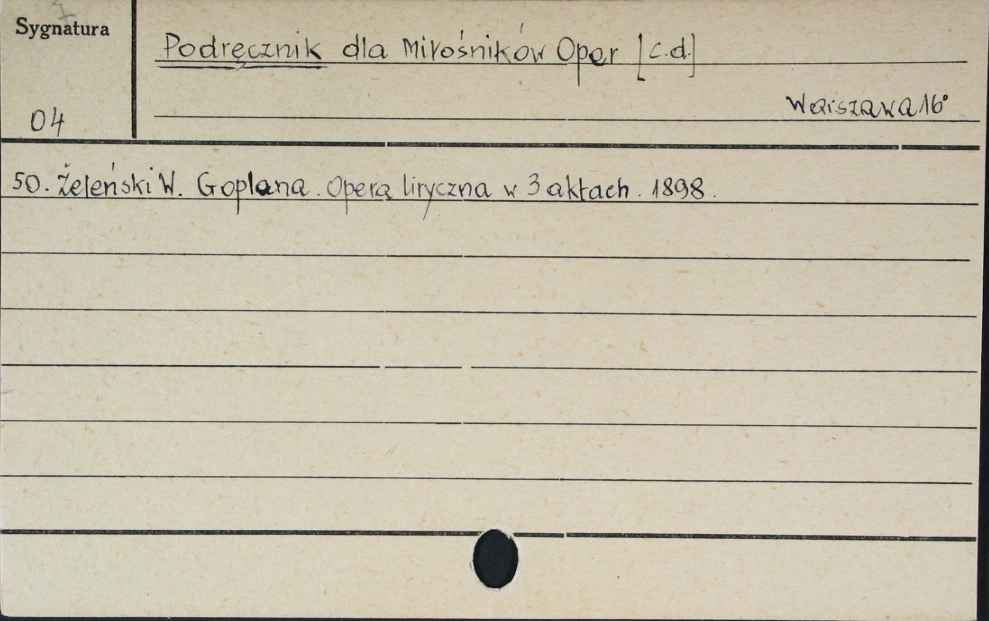 Sygnatura
Podręcznik dla Miłośników Oper [c.d.]
Warszawa 16°
04
50. Żeleński W. Goplana. Opera liryczna w 3 aktach. 1898.